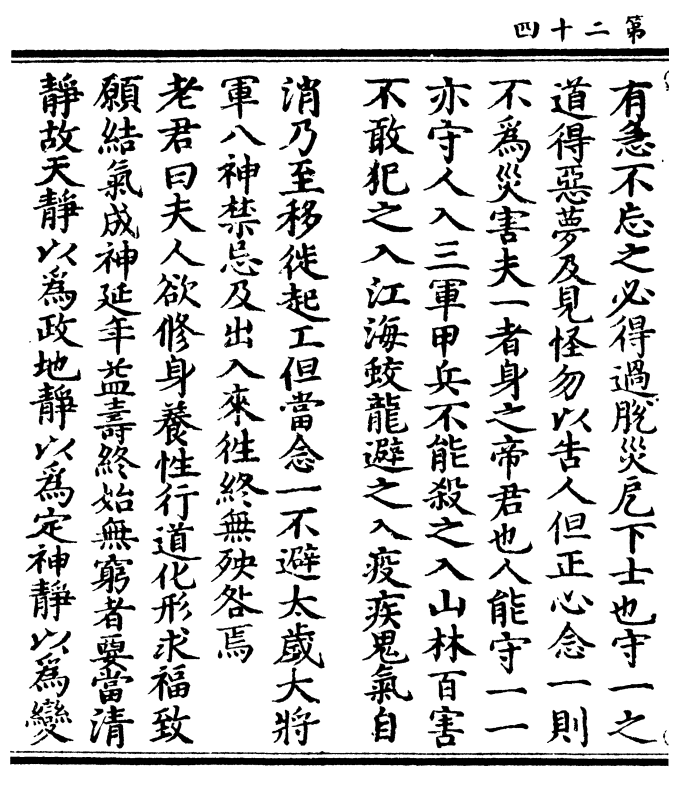 第二十四
有急不忘之必得過脫災戹下士也守一之
道得惡夢及見怪勿以告人但正心念一則
不爲災害夫一者身之帝君也人能守一一
亦守人入三軍甲兵不能殺之入山林百害
不敢犯之入江海蛟龍避之入疫疾鬼氣自
消乃至移徙起工但當念一不避太歲大將
軍八神禁忌及出入來徃終無殃咎焉
老君曰夫人欲修身養性行道化形求福致
願結氣成神延年益壽終始無窮者要當清
靜故天靜以爲政地靜以爲定神靜以爲變